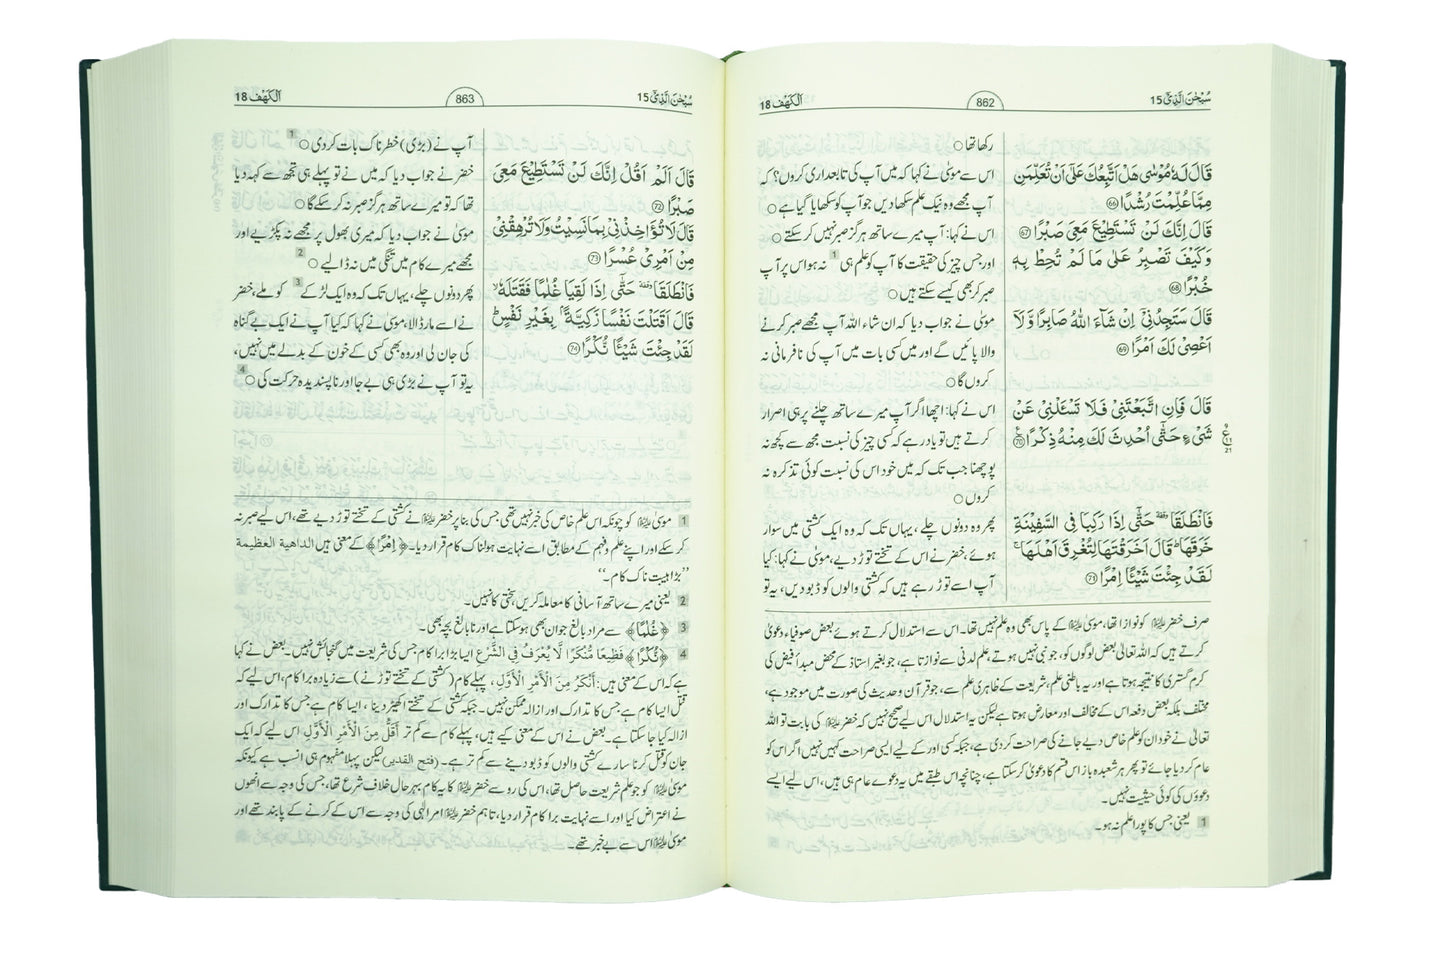 سُبْحٰنَ الَّذِيْٓ 15
862
اَلْكَهْف 18
قَالَ لَهٗ مُوْسٰى هَلْ اَتَّبِعُكَ عَلٰٓى اَنْ تُعَلِّمَنِ
مِمَّا عُلِّمْتَ رُشْدًا ﴿66﴾
قَالَ اِنَّكَ لَنْ تَسْتَطِيْعَ مَعِيَ صَبْرًا ﴿67﴾
وَكَيْفَ تَصْبِرُ عَلٰى مَا لَمْ تُحِطْ بِهٖ
خُبْرًا ﴿68﴾
قَالَ سَتَجِدُنِيْٓ اِنْ شَآءَ اللّٰهُ صَابِرًا وَّلَآ
اَعْصِيْ لَكَ اَمْرًا ﴿69﴾
قَالَ فَاِنِ اتَّبَعْتَنِيْ فَلَا تَسْـَٔلْنِيْ عَنْ
شَيْءٍ حَتّٰٓى اُحْدِثَ لَكَ مِنْهُ ذِكْرًا ﴿70﴾
ع
21
فَانْطَلَقَا حَتّٰٓى اِذَا رَكِبَا فِي السَّفِيْنَةِ
خَرَقَهَا ؕ قَالَ اَخَرَقْتَهَا لِتُغْرِقَ اَهْلَهَا ۚ
لَقَدْ جِئْتَ شَيْـًٔا اِمْرًا ﴿71﴾
رکھا تھا ○
اس سے موسیٰ نے کہا کہ میں آپ کی تابعداری کروں؟ کہ
آپ مجھے وہ نیک علم سکھا دیں جو آپ کو سکھایا گیا ہے ○
اس نے کہا: آپ میرے ساتھ ہرگز صبر نہیں کر سکتے ○
اور جس چیز کی حقیقت کا آپ کو علم ہی 1 نہ ہو اس پر آپ
صبر کر بھی کیسے سکتے ہیں ○
موسیٰ نے جواب دیا کہ ان شاء اللہ آپ مجھے صبر کرنے
والا پائیں گے اور میں کسی بات میں آپ کی نافرمانی نہ
کروں گا ○
اس نے کہا: اچھا اگر آپ میرے ساتھ چلنے پر ہی اصرار
کرتے ہیں تو یاد رہے کہ کسی چیز کی نسبت مجھ سے کچھ نہ
پوچھنا جب تک کہ میں خود اس کی نسبت کوئی تذکرہ نہ
کروں ○
پھر وہ دونوں چلے، یہاں تک کہ وہ ایک کشتی میں سوار
ہوئے، خضر نے اس کے تختے توڑ دیے، موسیٰ نے کہا: کیا
آپ اسے توڑ رہے ہیں کہ کشتی والوں کو ڈبو دیں، یہ تو
صرف خضر علیہ السلام کو نوازا تھا، موسیٰ علیہ السلام کے پاس بھی وہ علم نہیں تھا۔ اس سے استدلال کرتے ہوئے بعض صوفیاء دعویٰ
کرتے ہیں کہ اللہ تعالیٰ بعض لوگوں کو، جو نبی نہیں ہوتے، علم لدنی سے نوازتا ہے، جو بغیر استاذ کے محض مبدأ فیض کی
کرم گستری کا نتیجہ ہوتا ہے اور یہ باطنی علم، شریعت کے ظاہری علم سے، جو قرآن و حدیث کی صورت میں موجود ہے،
مختلف بلکہ بعض دفعہ اس کے مخالف اور معارض ہوتا ہے لیکن یہ استدلال اس لیے صحیح نہیں کہ خضر علیہ السلام کی بابت تو اللہ
تعالیٰ نے خود ان کو علم خاص دیے جانے کی صراحت کر دی ہے، جبکہ کسی اور کے لیے ایسی صراحت کہیں نہیں اگر اس کو
عام کر دیا جائے تو پھر ہر شعبدہ باز اس قسم کا دعویٰ کر سکتا ہے، چنانچہ اس طبقے میں یہ دعوے عام ہی ہیں، اس لیے ایسے
دعوؤں کی کوئی حیثیت نہیں۔
1 یعنی جس کا پورا علم نہ ہو۔
سُبْحٰنَ الَّذِيْٓ 15
863
اَلْكَهْف 18
قَالَ اَلَمْ اَقُلْ اِنَّكَ لَنْ تَسْتَطِيْعَ مَعِيَ
صَبْرًا ﴿72﴾
قَالَ لَا تُؤَاخِذْنِيْ بِمَا نَسِيْتُ وَلَا تُرْهِقْنِيْ
مِنْ اَمْرِيْ عُسْرًا ﴿73﴾
فَانْطَلَقَا حَتّٰٓى اِذَا لَقِيَا غُلٰمًا فَقَتَلَهٗ ۙ
قَالَ اَقَتَلْتَ نَفْسًا زَكِيَّةًۢ بِغَيْرِ نَفْسٍ ؕ
لَقَدْ جِئْتَ شَيْـًٔا نُّكْرًا ﴿74﴾
آپ نے (بڑی) خطرناک بات کر دی ○ 1
خضر نے جواب دیا کہ میں نے تو پہلے ہی تجھ سے کہہ دیا
تھا کہ تو میرے ساتھ ہرگز صبر نہ کر سکے گا ○
موسیٰ نے جواب دیا کہ میری بھول پر مجھے نہ پکڑیے اور
مجھے میرے کام میں تنگی میں نہ ڈالیے ○ 2
پھر دونوں چلے، یہاں تک کہ وہ ایک لڑکے 3 کو ملے، خضر
نے اسے مار ڈالا، موسیٰ نے کہا کہ کیا آپ نے ایک بے گناہ
کی جان لی اور وہ بھی کسی کے خون کے بدلے میں نہیں،
یہ تو آپ نے بڑی ہی بے جا اور ناپسندیدہ حرکت کی ○ 4
1 موسیٰ علیہ السلام کو چونکہ اس علم خاص کی خبر نہیں تھی جس کی بنا پر خضر علیہ السلام نے کشتی کے تختے توڑ دیے تھے، اس لیے صبر نہ
کر سکے اور اپنے علم و فہم کے مطابق اسے نہایت ہولناک کام قرار دیا۔ ﴿اِمْرًا﴾ کے معنی ہیں الداهية العظيمة
”بڑا ہیبت ناک کام۔“
2 یعنی میرے ساتھ آسانی کا معاملہ کریں، سختی کا نہیں۔
3 ﴿غُلٰمًا﴾ سے مراد بالغ جوان بھی ہو سکتا ہے اور نابالغ بچہ بھی۔
4 ﴿نُكْرًا﴾ فَظِيعًا مُنْكَرًا لَا يُعْرَفُ فِي الشَّرْعِ ایسا بڑا برا کام جس کی شریعت میں گنجائش نہیں۔ بعض نے کہا
ہے کہ اس کے معنی ہیں: أَنْكَرُ مِنَ الْأَمْرِ الْأَوَّلِ، پہلے کام (کشتی کے تختے توڑنے) سے زیادہ برا کام، اس لیے کہ
قتل ایسا کام ہے جس کا تدارک اور ازالہ ممکن نہیں۔ جبکہ کشتی کے تختے اکھیڑ دینا، ایسا کام ہے جس کا تدارک اور
ازالہ کیا جا سکتا ہے۔ بعض نے اس کے معنی کیے ہیں، پہلے کام سے کم تر أَقَلُّ مِنَ الْأَمْرِ الْأَوَّلِ اس لیے کہ ایک
جان کو قتل کرنا سارے کشتی والوں کو ڈبو دینے سے کم تر ہے۔ (فتح القدیر) لیکن پہلا مفہوم ہی انسب ہے کیونکہ
موسیٰ علیہ السلام کو جو علم شریعت حاصل تھا، اس کی رو سے خضر علیہ السلام کا یہ کام بہرحال خلاف شرع تھا، جس کی وجہ سے انھوں
نے اعتراض کیا اور اسے نہایت برا کام قرار دیا، تاہم خضر علیہ السلام امر الٰہی کی وجہ سے اس کے کرنے کے پابند تھے اور
موسیٰ علیہ السلام اس سے بے خبر تھے۔